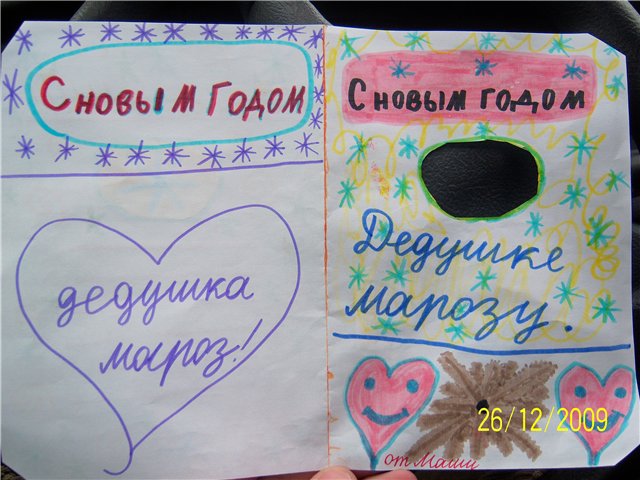 С новым годом
дедушка
мароз!
С новым годом
Дедушке
марозу.
от Маши
26/12/2009